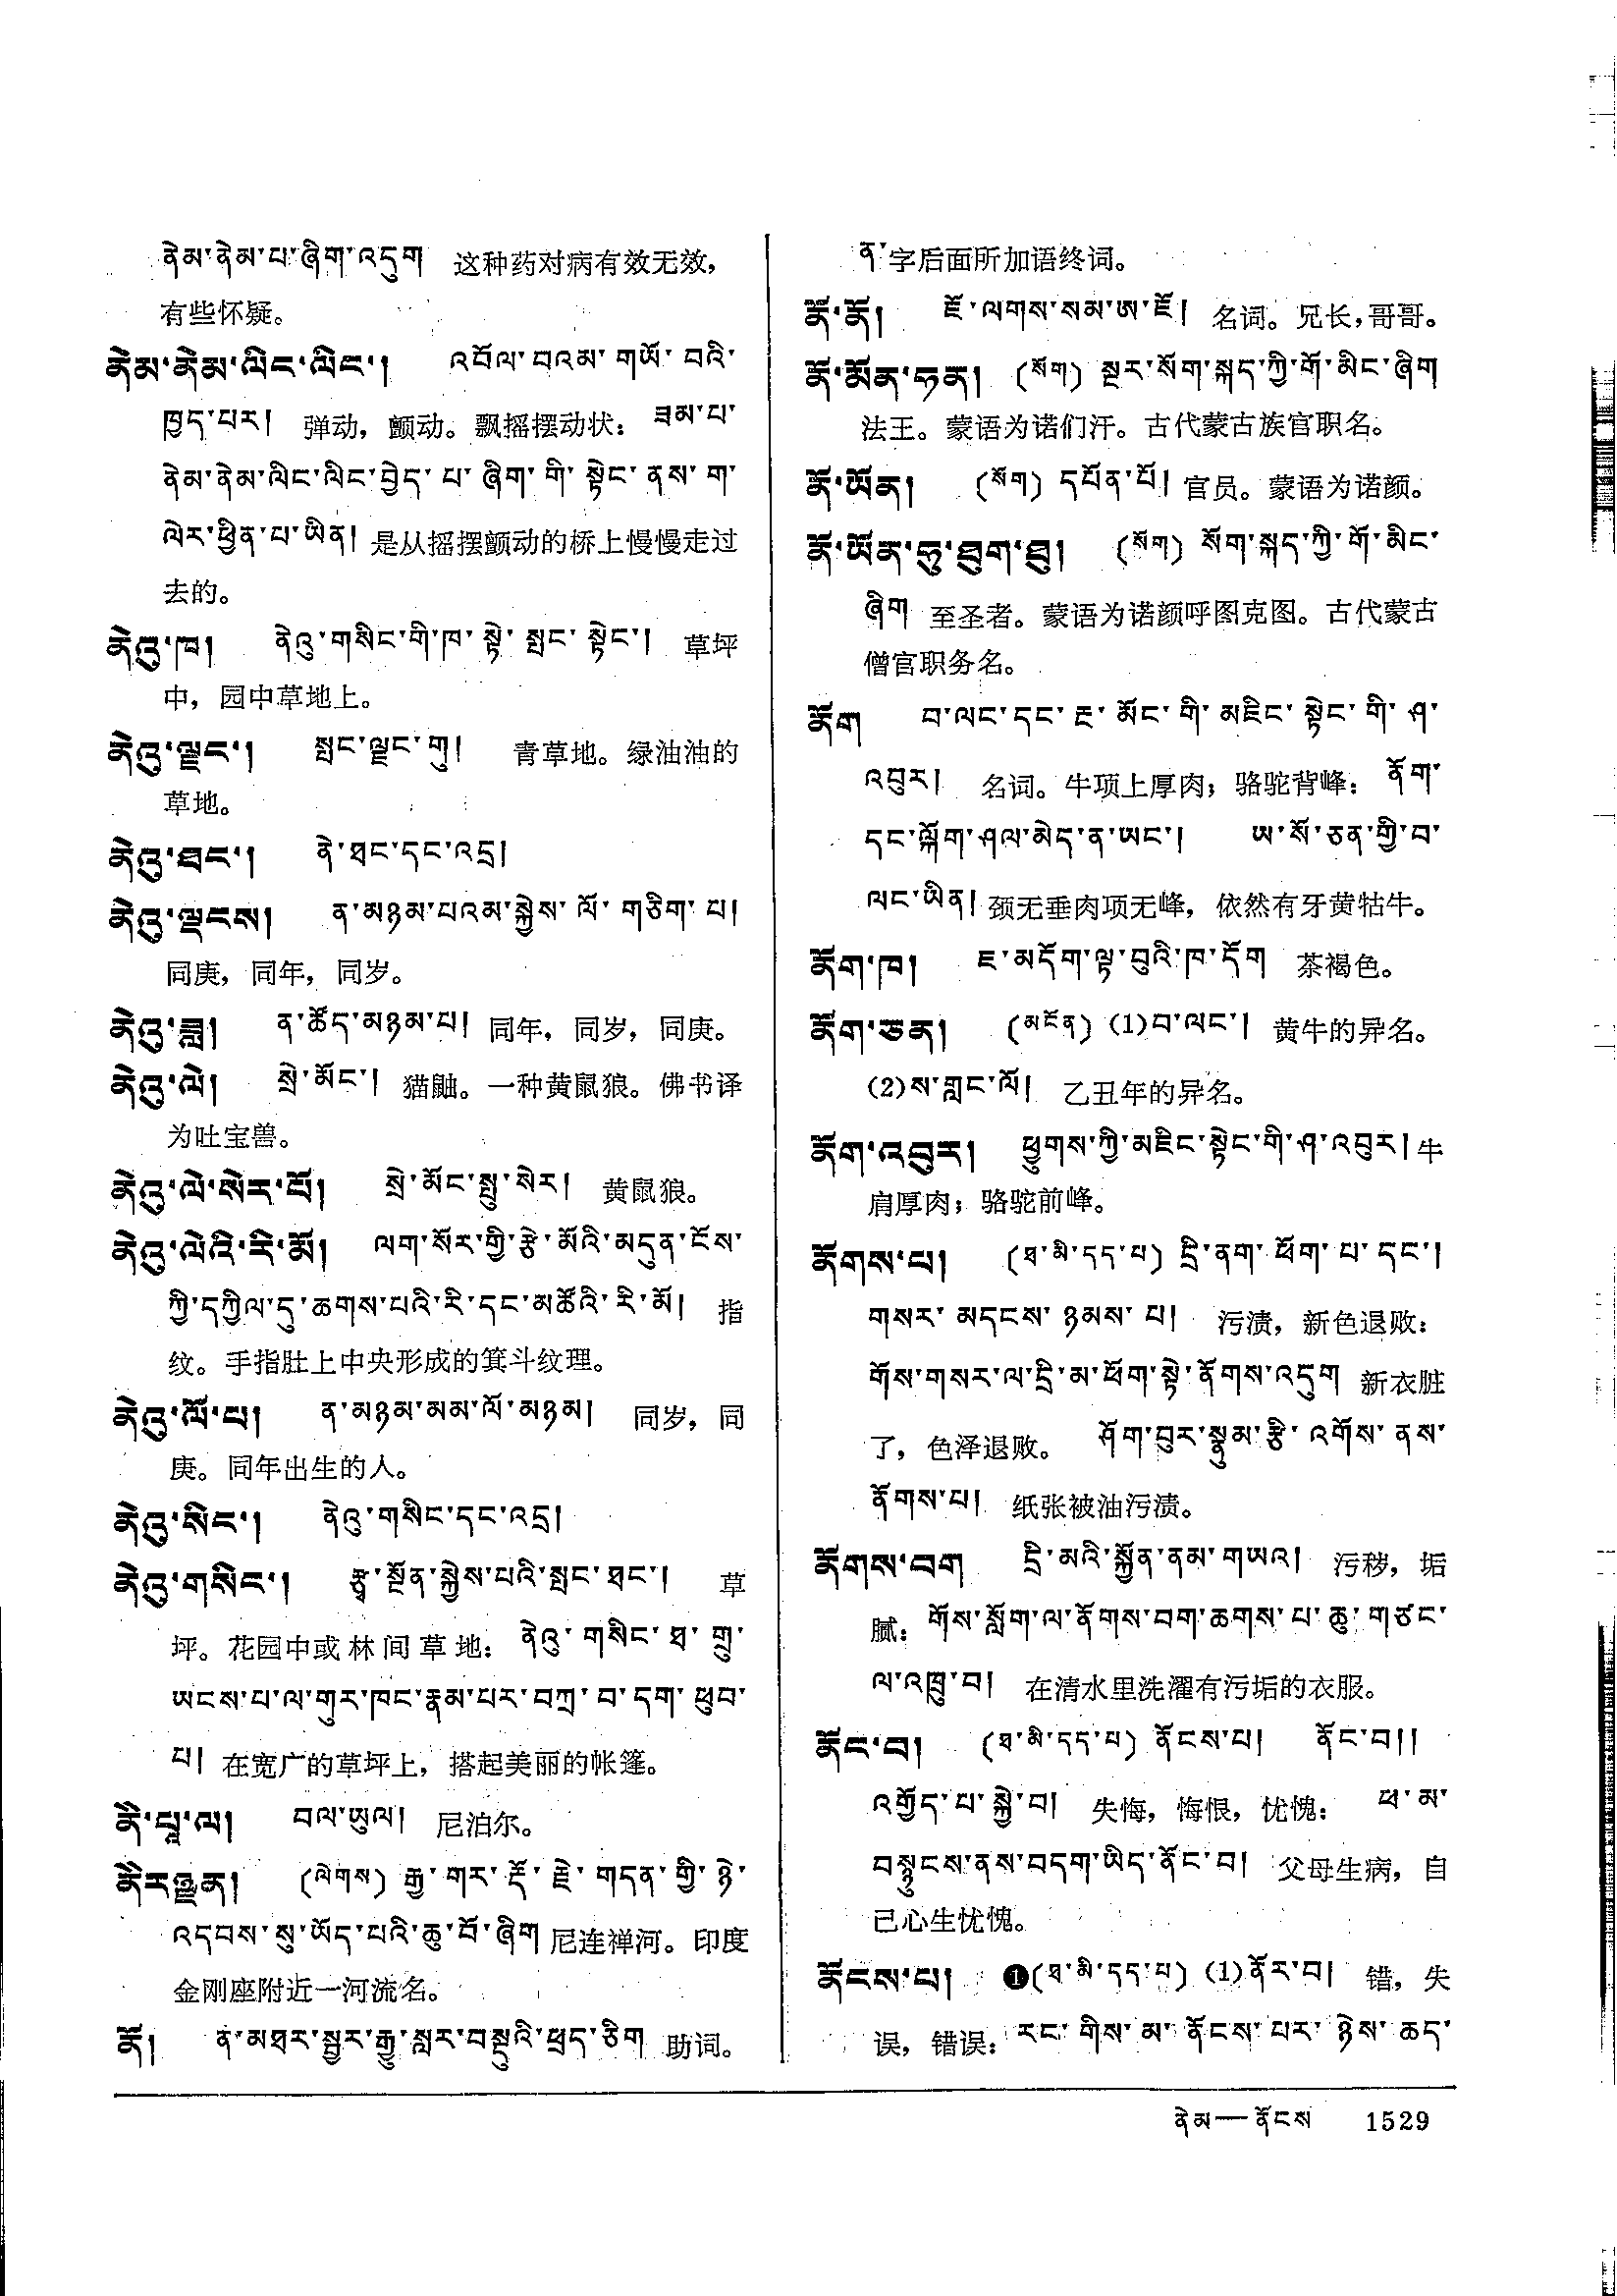 ནེམ་ནེམ་པ་ཞིག་འདུག 这种药对病有效无效，
有些怀疑。
ནེམ་ནེམ་ལིང་ལིང་། འབོལ་བའམ་གཡོ་བའི་
ཁྱད་པར། 弹动，颤动。飘摇摆动状：ཟམ་པ་
ནེམ་ནེམ་ལིང་ལིང་བྱེད་པ་ཞིག་གི་སྟེང་ནས་ག་
ལེར་ཕྱིན་པ་ཡིན། 是从摇摆颤动的桥上慢慢走过
去的。
ནེའུ་ཁ། ནེའུ་གསིང་གི་ཁ་སྟེ་སྤང་སྟེང་། 草坪
中，园中草地上。
ནེའུ་ལྗང་། སྤང་ལྗང་གུ། 青草地。绿油油的
草地。
ནེའུ་ཐང་། ནེ་ཐང་དང་འདྲ།
ནེའུ་ལྡངས། ན་མཉམ་པའམ་སྐྱེས་ལོ་གཅིག་པ།
同庚，同年，同岁。
ནེའུ་ཟླ། ན་ཚོད་མཉམ་པ། 同年，同岁，同庚。
ནེའུ་ལེ། སྲེ་མོང་། 猫鼬。一种黄鼠狼。佛书译
为吐宝兽。
ནེའུ་ལེ་སེར་པོ། སྲེ་མོང་སྤུ་སེར། 黄鼠狼。
ནེའུ་ལེའི་རི་མོ། ལག་སོར་གྱི་རྩེ་མོའི་མདུན་ངོས་
ཀྱི་དཀྱིལ་དུ་ཆགས་པའི་རི་དང་མཚོའི་རི་མོ། 指
纹。手指肚上中央形成的箕斗纹理。
ནེའུ་ལོ་པ། ན་མཉམ་མམ་ལོ་མཉམ། 同岁，同
庚。同年出生的人。
ནེའུ་སིང་། ནེའུ་གསིང་དང་འདྲ།
ནེའུ་གསིང་། རྩྭ་སྔོན་སྐྱེས་པའི་སྤང་ཐང་། 草
坪。花园中或林间草地：ནེའུ་གསིང་ཐ་གྲུ་
ཡངས་པ་ལ་གུར་ཁང་རྣམ་པར་བཀྲ་བ་དག་ཕུབ་
པ། 在宽广的草坪上，搭起美丽的帐篷。
ནེ་པཱ་ལ། བལ་ཡུལ། 尼泊尔。
(ལེགས) རྒྱ་གར་རྡོ་རྗེ་གདན་གྱི་ཉེ་
འདབས་སུ་ཡོད་པའི་ཆུ་བོ་ཞིག 尼连禅河。印度
金刚座附近一河流名。
ནོ། ན་མཐར་སྦྱར་རྒྱུ་སླར་བསྡུའི་ཕྲད་ཅིག 助词。
ན་字后面所加语终词。
ནོ་ནོ། ཇོ་ལགས་སམ་ཨ་ཇོ། 名词。兄长，哥哥。
ནོ་མོན་ཧན། (སོག) སྔར་སོག་སྐད་ཀྱི་གོ་མིང་ཞིག
法王。蒙语为诺们汗。古代蒙古族官职名。
ནོ་ཡོན། (སོག) དཔོན་པོ། 官员。蒙语为诺颜。
ནོ་ཡོན་ཧུ་ཐུག་ཐུ། (སོག) སོག་སྐད་ཀྱི་གོ་མིང་
ཞིག 至圣者。蒙语为诺颜呼图克图。古代蒙古
僧官职务名。
ནོག བ་ལང་དང་རྔ་མོང་གི་མཇིང་སྟེང་གི་ཤ་
འབུར། 名词。牛项上厚肉；骆驼背峰：ནོག་
དང་ལྐོག་ཤལ་མེད་ན་ཡང་། ཨ་སོ་ཅན་གྱི་བ་
ལང་ཡིན། 颈无垂肉项无峰，依然有牙黄牯牛。
ནོག་ཁ། ཇ་མདོག་ལྟ་བུའི་ཁ་དོག 茶褐色。
ནོག་ཅན། (མངོན) (1)བ་ལང་། 黄牛的异名。
(2)ས་གླང་ལོ། 乙丑年的异名。
ནོག་འབུར། ཕྱུགས་ཀྱི་མཇིང་སྟེང་གི་ཤ་འབུར། 牛
肩厚肉；骆驼前峰。
ནོགས་པ། (ཐ་མི་དད་པ) དྲི་ནག་ཕོག་པ་དང་།
གསར་མདངས་ཉམས་པ། 污渍，新色退败：
གོས་གསར་ལ་དྲི་མ་ཕོག་སྟེ་ནོགས་འདུག 新衣脏
了，色泽退败。 ཤོག་བུར་སྣུམ་རྩི་འགོས་ནས་
ནོགས་པ། 纸张被油污渍。
ནོགས་བག དྲི་མའི་སྐྱོན་ནམ་གཡའ། 污秽，垢
腻：གོས་སློག་ལ་ནོགས་བག་ཆགས་པ་ཆུ་གཙང་
ལ་འཁྲུ་བ། 在清水里洗濯有污垢的衣服。
ནོང་བ། (ཐ་མི་དད་པ) ནོངས་པ། ནོང་བ།།
འགྱོད་པ་སྐྱེ་བ། 失悔，悔恨，忧愧： ཕ་མ་
བསྙུངས་ནས་བདག་ཡིད་ནོང་བ། 父母生病，自
己心生忧愧。
ནོངས་པ། ❶(ཐ་མི་དད་པ) (1)ནོར་བ། 错，失
误，错误：རང་གིས་མ་ནོངས་པར་ཉེས་ཆད་
ནེམ—ནོངས 1529